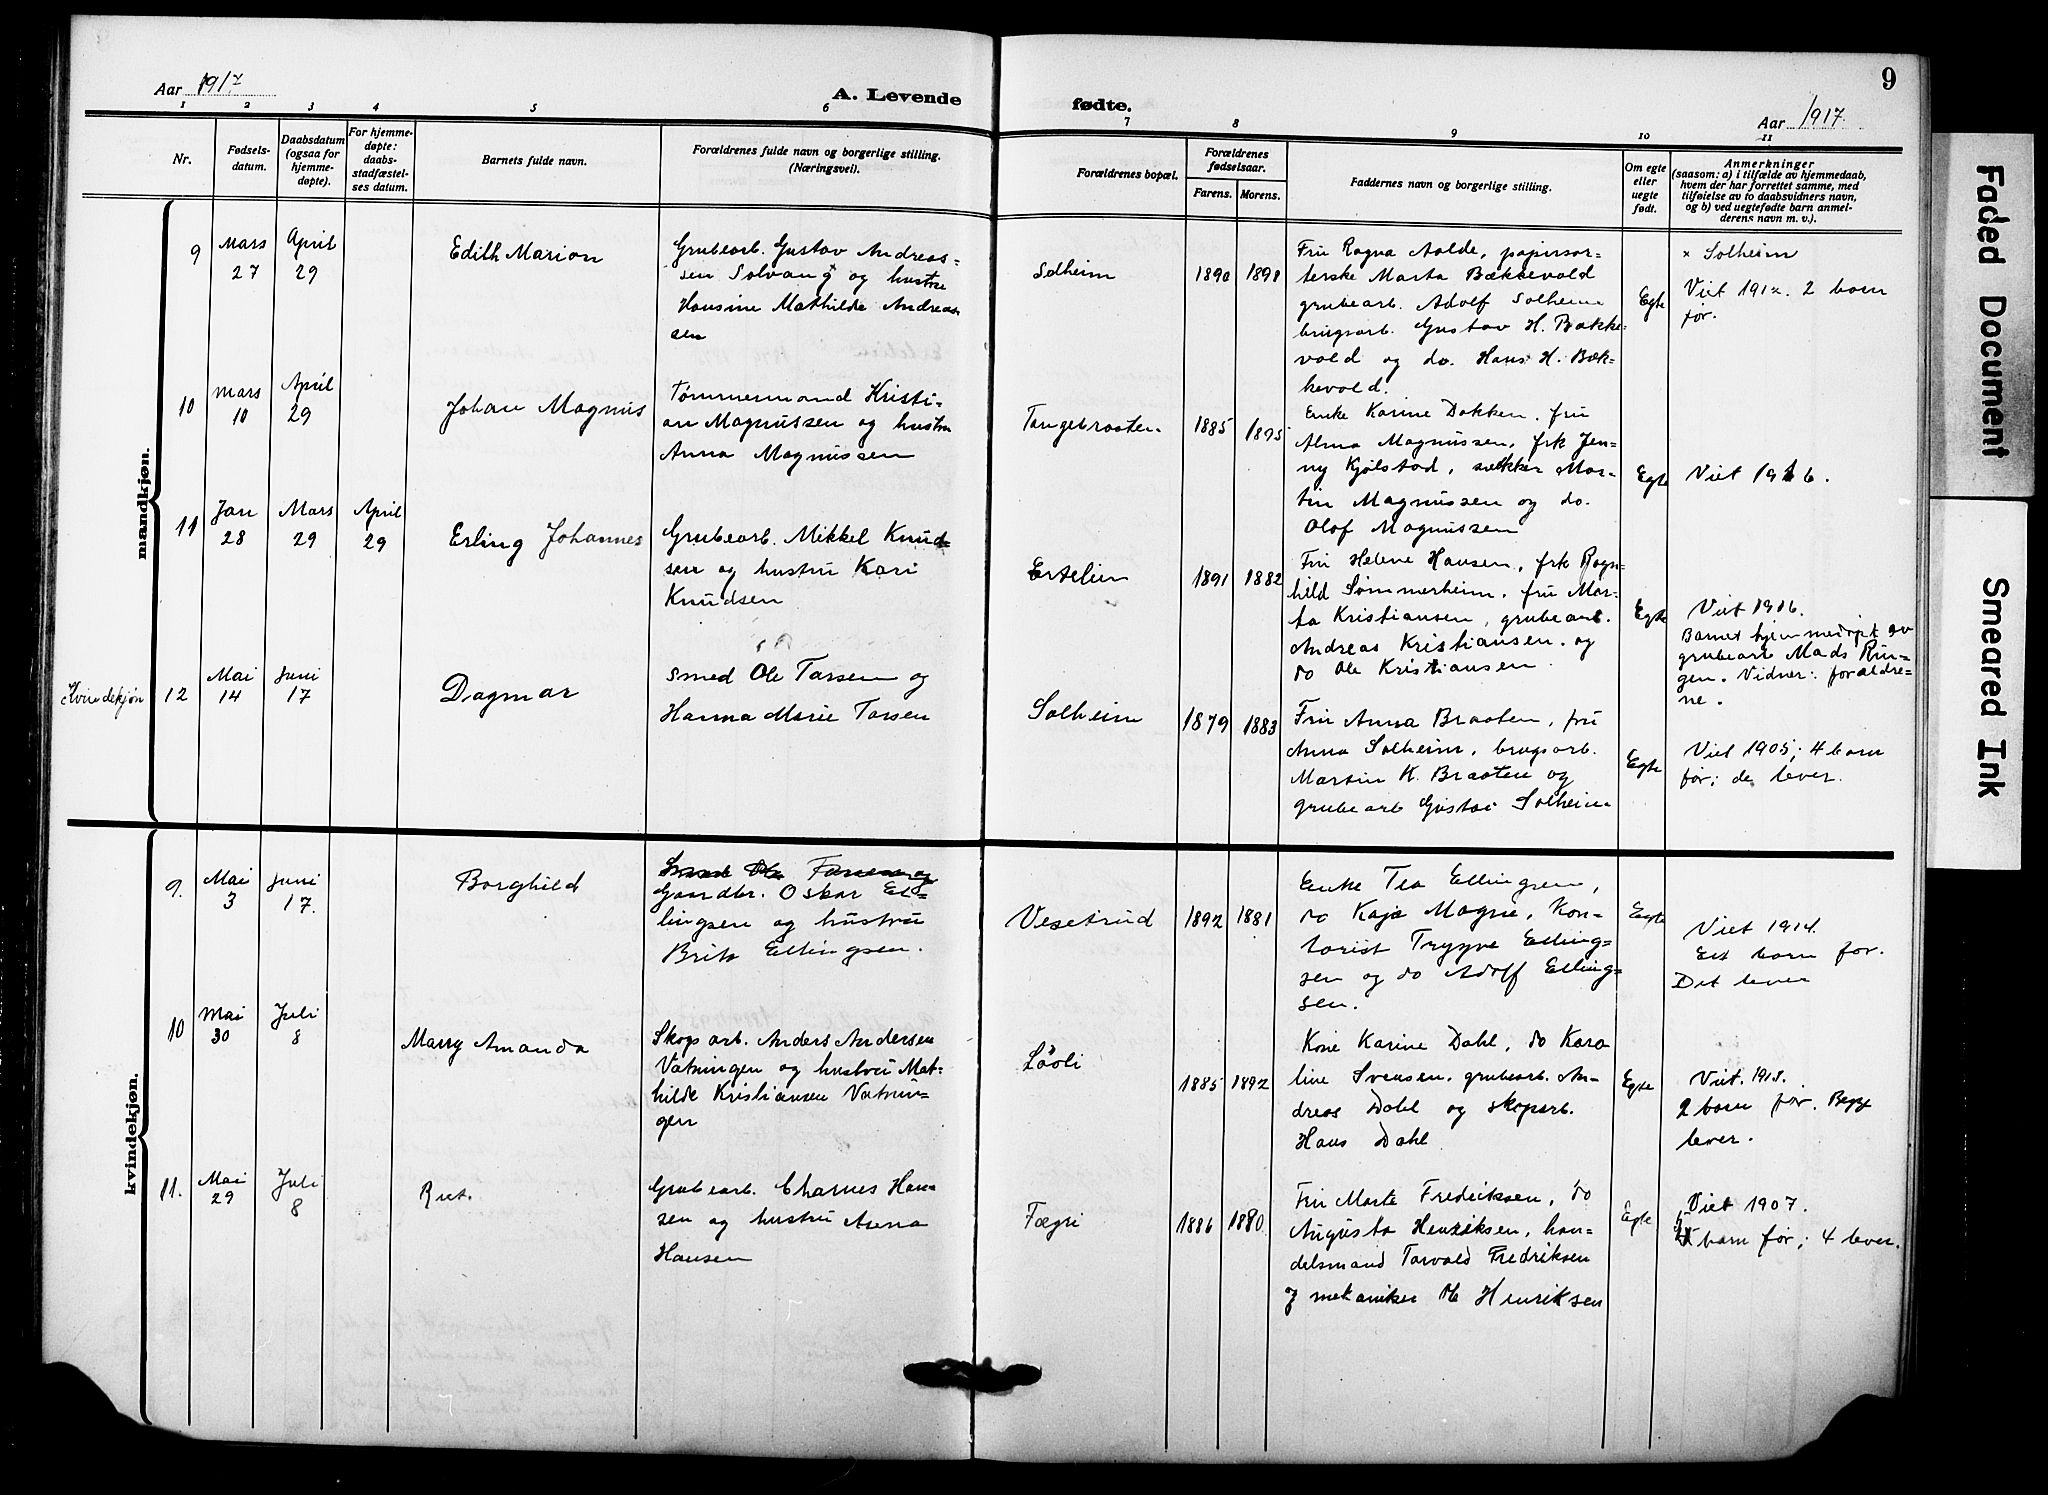 9
Aar 1917
A. Levende
fødte.
Aar 1917.
1 2 3 4 5 6 7 8 9 10 11
Nr.
Fødsels-
datum.
Daabsdatum
(ogsaa for
hjemme-
døpte).
For hjemme-
døpte:
daabs-
stadfæstel-
ses datum.
Barnets fulde navn.
Forældrenes fulde navn og borgerlige stilling.
(Næringsvei).
Forældrenes bopæl.
Forældrenes
fødselsaar.
Farens. Morens.
Faddernes navn og borgerlige stilling.
Om egte
eller
uegte
født.
Anmerkninger
(saasom: a) i tilfælde av hjemmedaab,
hvem der har forrettet samme, med
tilføielse av to daabsvidners navn,
og b) ved uegtefødte barn anmel-
derens navn m. v.).
mandkjøn.
9
Mars
27
April
29
Edith Marion
Grubearb. Gustav Andreas-
sen Solvang og hustru
Hansine Mathilde Andreas-
sen
Solheim
1890
1898
Fru Ragna Aalde, papirsor-
terske Marta Bækkevold
grubearb. Adolf Solheim
brugsarb. Gustav H. Bække-
vold og do. Hans H. Bæk-
kevold.
Egte
× Solheim
Viet 1912. 2 barn
før.
10
Mars
10
April
29
Johan Magnus
Tømmermand Kristi-
an Magnussen og hustru
Anna Magnussen
Tangebraaten
1885
1895
Enke Karine Dokken, fru
Alma Magnussen, frk Jen-
ny Kjølstad, snekker Mar-
tin Magnussen og do.
Olaf Magnussen
Egte
Viet 1916.
11
Jan
28
Mars
29
April
29
Erling Johannes
Grubearb. Mikkel Knud-
sen og hustru Kari
Knudsen
Ertelien
1891
1882
Fru Helene Hansen, frk Ragn-
hild Sømmerheim, fru Mar-
ta Kristiansen, grubearb.
Andreas Kristiansen. og
do Ole Kristiansen
Egte
Viet 1916.
Barnet hjemmedøpt av
grubearb Mads Rin-
gen. Vidner: forældre-
ne.
Kvindekjøn
12
Mai
14
Juni
17
Dagmar
Smed Ole Tarsen og
Hanna Marie Tarsen
Solheim
1879
1883
Fru Anna Braaten, fru
Anna Solheim, brugsarb.
Martin K. Braaten og
grubearb Gustav Solheim
Egte
Viet 1905; 4 barn
før; de lever.
kvindekjøn.
9.
Mai
3
Juni
17.
Borghild
Smed Ole Tarsen og
Gaardbr. Oskar El-
lingsen og hustru
Brita Ellingsen.
Vesetrud
1892
1881
Enke Tea Ellingsen,
do Kaja Magne, kon-
torist Trygve Elling-
sen og do Adolf Elling-
sen.
Egte
Viet 1914.
Et barn før.
Det lever
10
Mai
30
Juli
8
Marry Amanda
Skogsarb. Anders Andersen
Vatningen og hustru Mat-
hilde Kristiansen Vatnin-
gen
Lóóli
1885
1892
Kone Karine Dahl, do Karo
line Svensen, grubearb. An-
dreas Dahl og skogsarb.
Hans Dahl
Egte
Viet. 1913.
2 barn før. Begge
lever.
11.
Mai
29
Juli
8
Rut.
Grubearb. Charnes Han-
sen og hustru Anna
Hansen
Fægri
1886
1880
Fru Marte Fredriksen, do
Augusta Henriksen, han-
delsmand Torvald Fredriksen
og mekaniker Ole Henriksen
Egte
Viet 1907.
5 barn før; 4 lever.
Faded Document
Smeared Ink